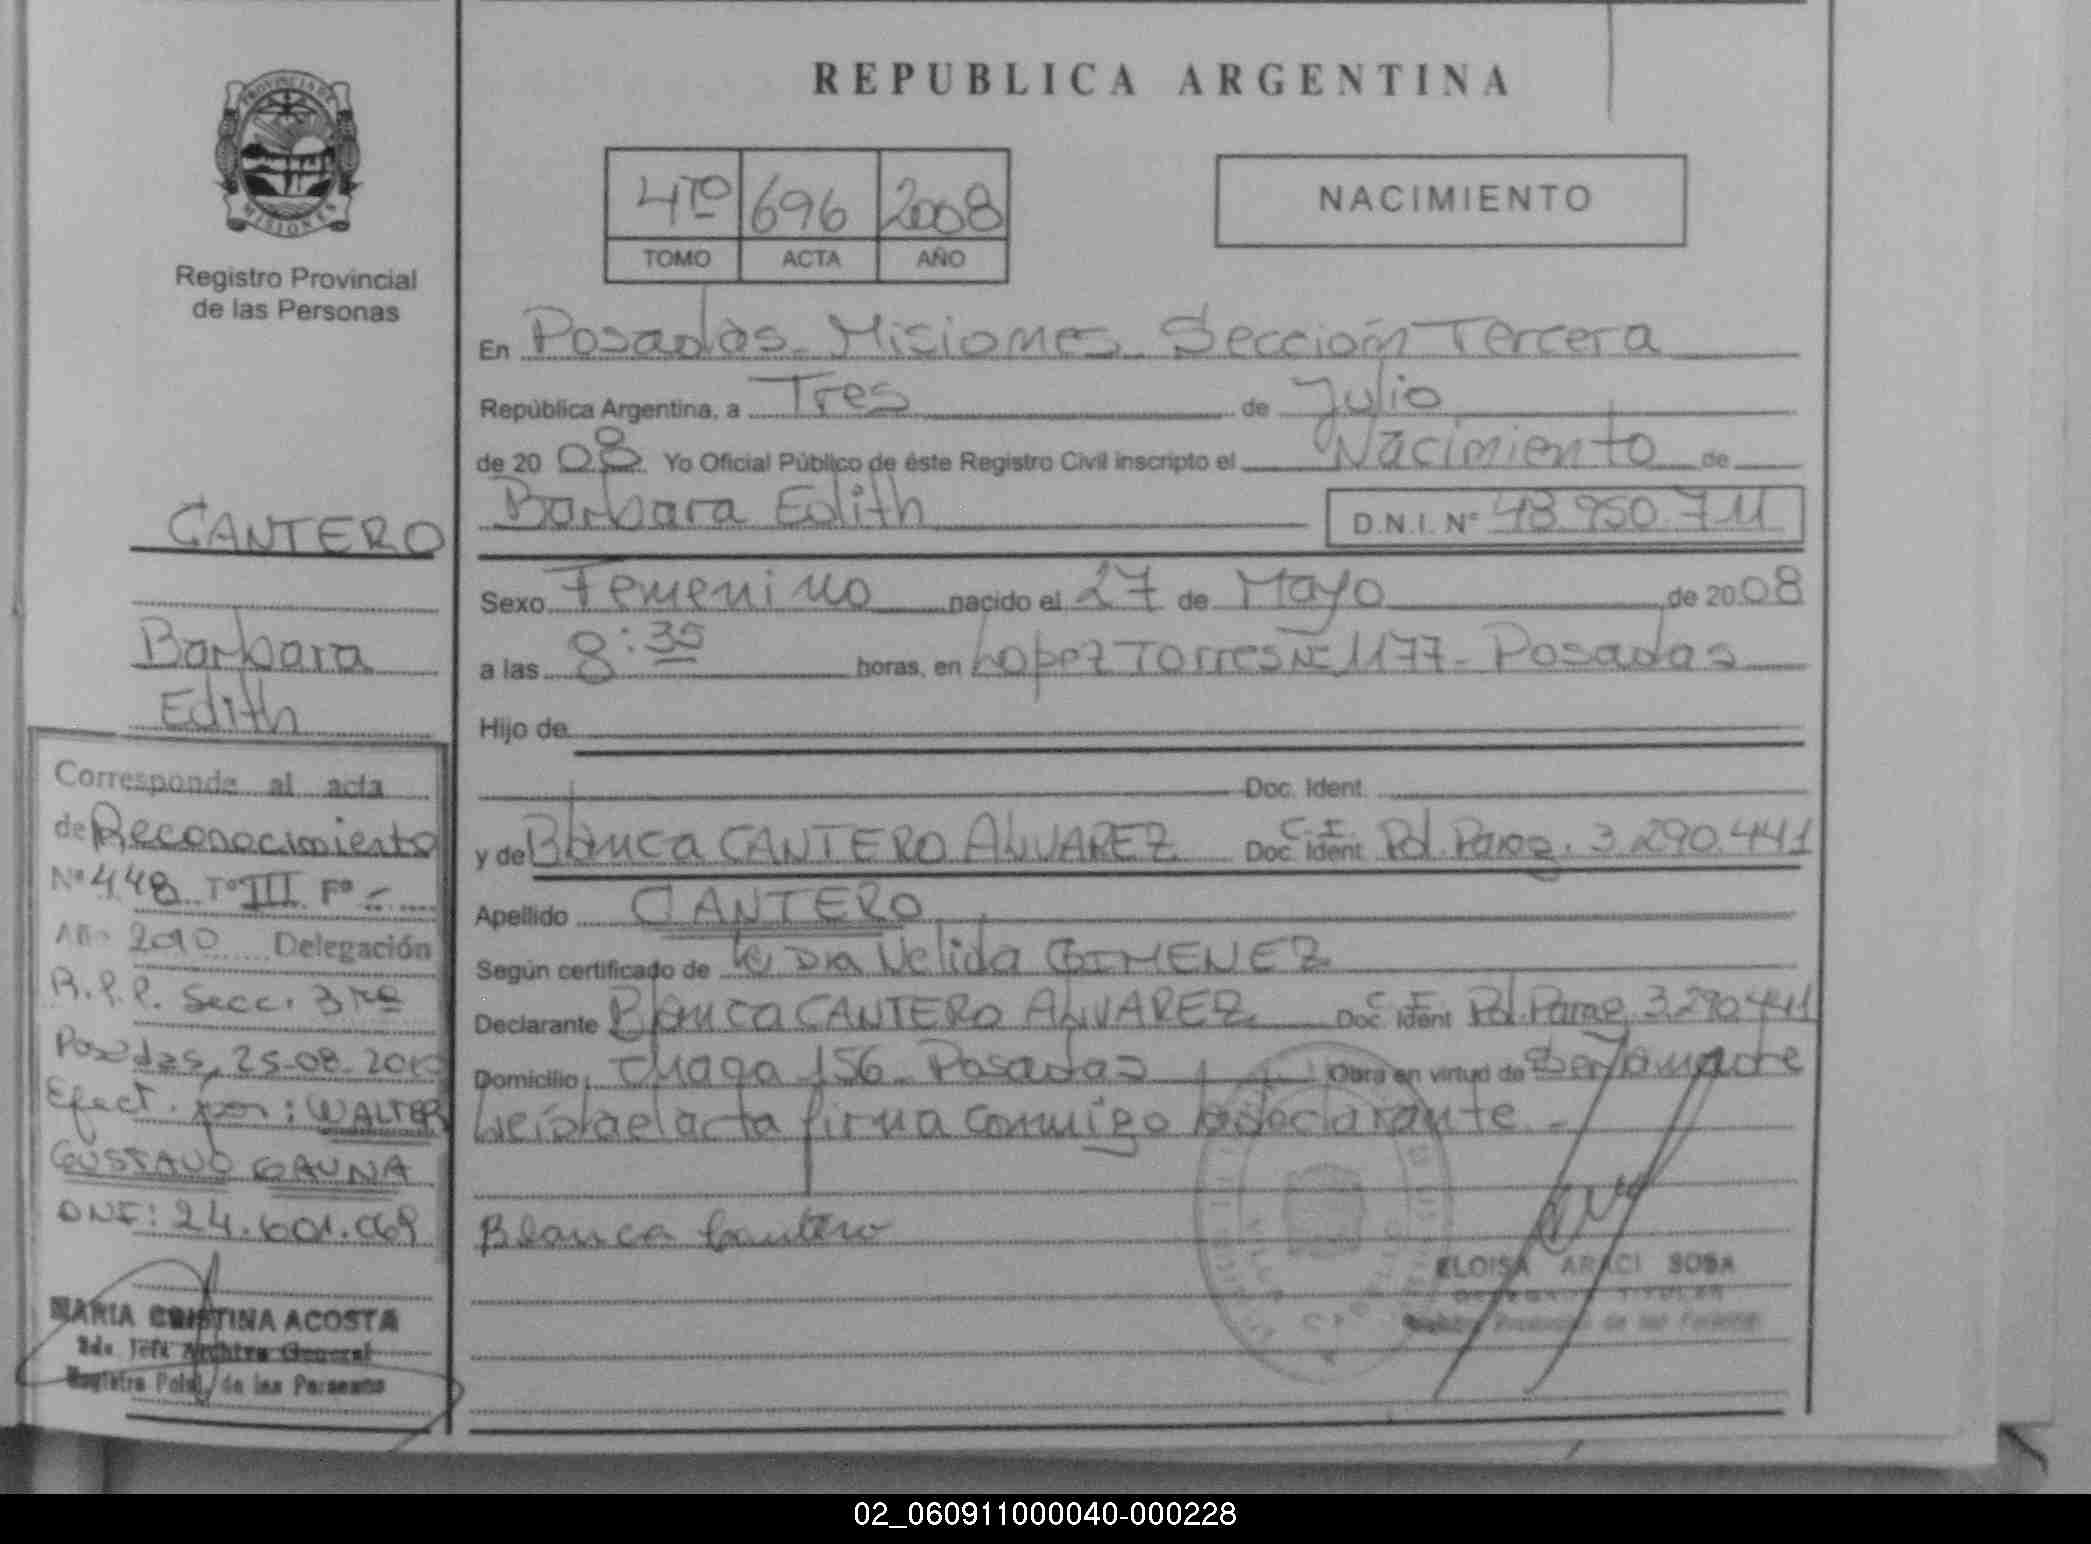 REPUBLICA ARGENTINA
PROVINCIA DE
MISIONES
Registro Provincial
de las Personas
4TO 696 2008
TOMO ACTA AÑO
NACIMIENTO
En Posadas - Misiones - Sección Tercera
República Argentina, a Tres de Julio
de 20 08 Yo Oficial Público de éste Registro Civil inscripto el Nacimiento de
Barbara Edith D.N.I. Nº 48.950.711
Sexo Femenino nacido el 27 de Mayo de 20 08
a las 8:35 horas, en Lopez Torres Nº 1177 - Posadas
Hijo de
Doc. Ident.
y de Blanca CANTERO ALVAREZ Doc. Ident. C. I. Pol. Parag. 3.290.441
Apellido CANTERO
Según certificado de la Dra Nelida GIMENEZ
Declarante Blanca CANTERO ALVAREZ Doc. Ident C. I. Pol. Parag. 3.290.441
Domicilio 156 - Posadas Obra en virtud de Ser la madre
Leída el acta firma conmigo la declarante. -
Blanca Cantero
ELOISA ARACI SOSA
DELEGADA TITULAR
Registro Provincial de las Personas
CANTERO
Barbara
Edith
Corresponde al acta
de Reconocimiento
Nº 448 Tº III Fº -
Año 2010 Delegación
R.P.P. Secc. 3ra
Posadas, 25-08-2010
Efect. por: WALTER
GUSTAVO GAUNA
DNI: 24.601.069
MARIA CRISTINA ACOSTA
2da Jefa Archivo General
Registro Pcial. de las Personas
02_060911000040-000228